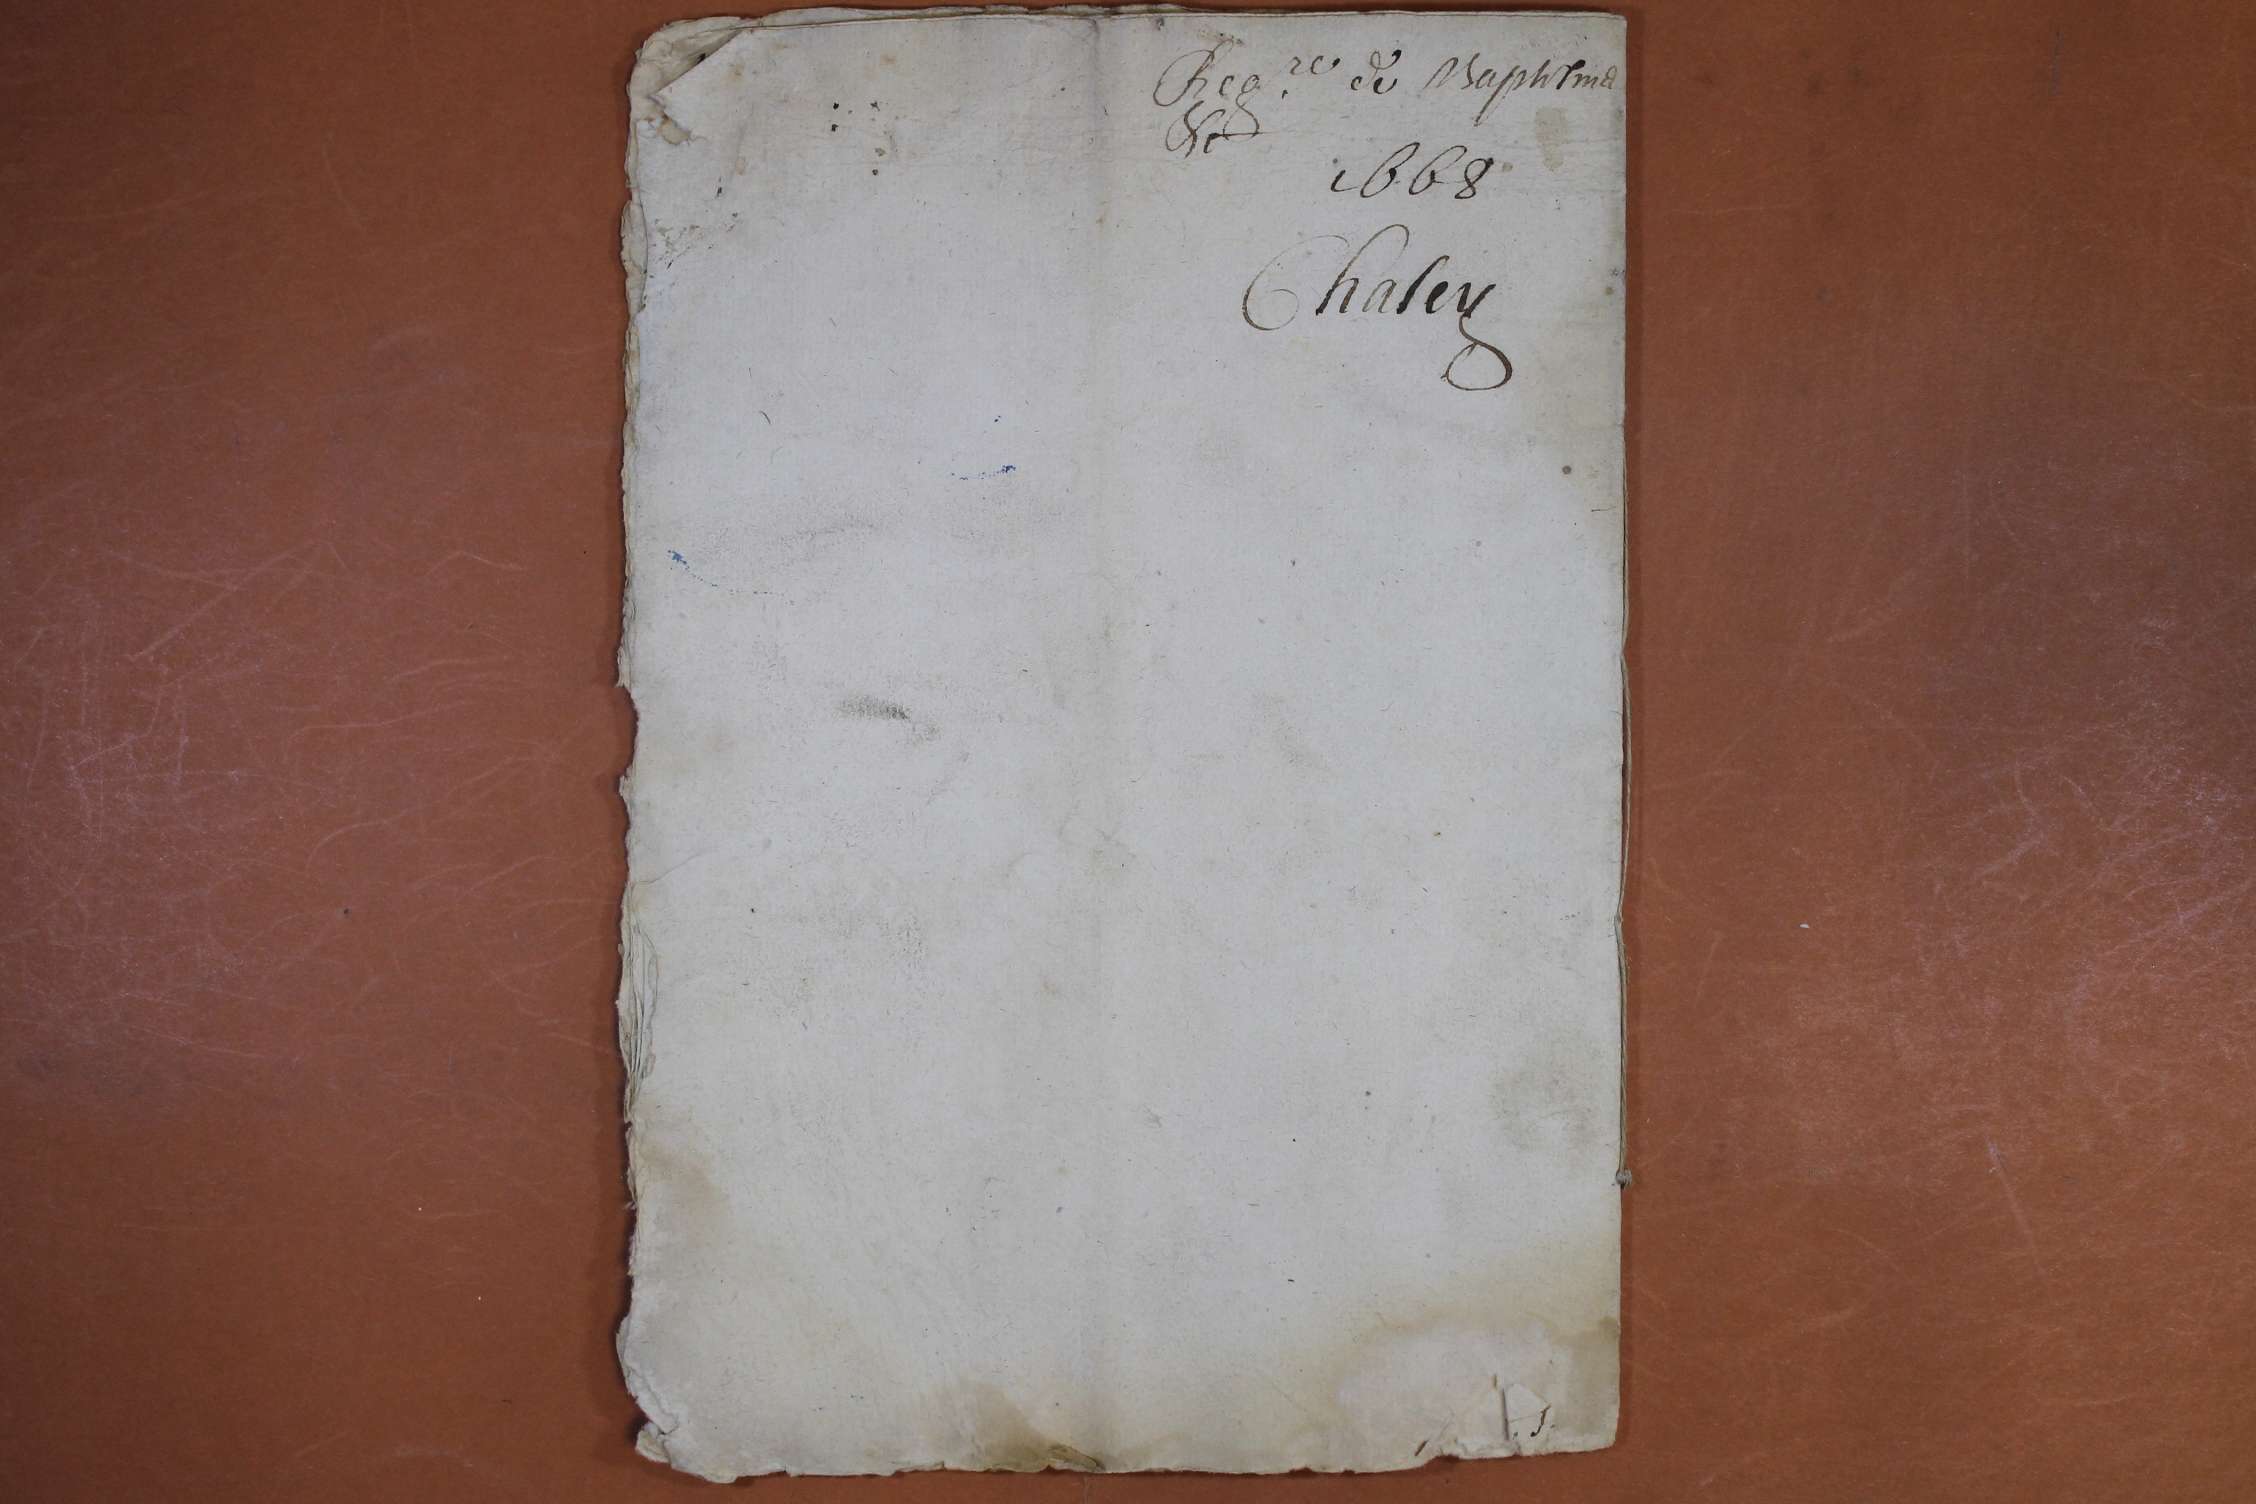 Reg.re de Baptesme
&c
1668
Chaley